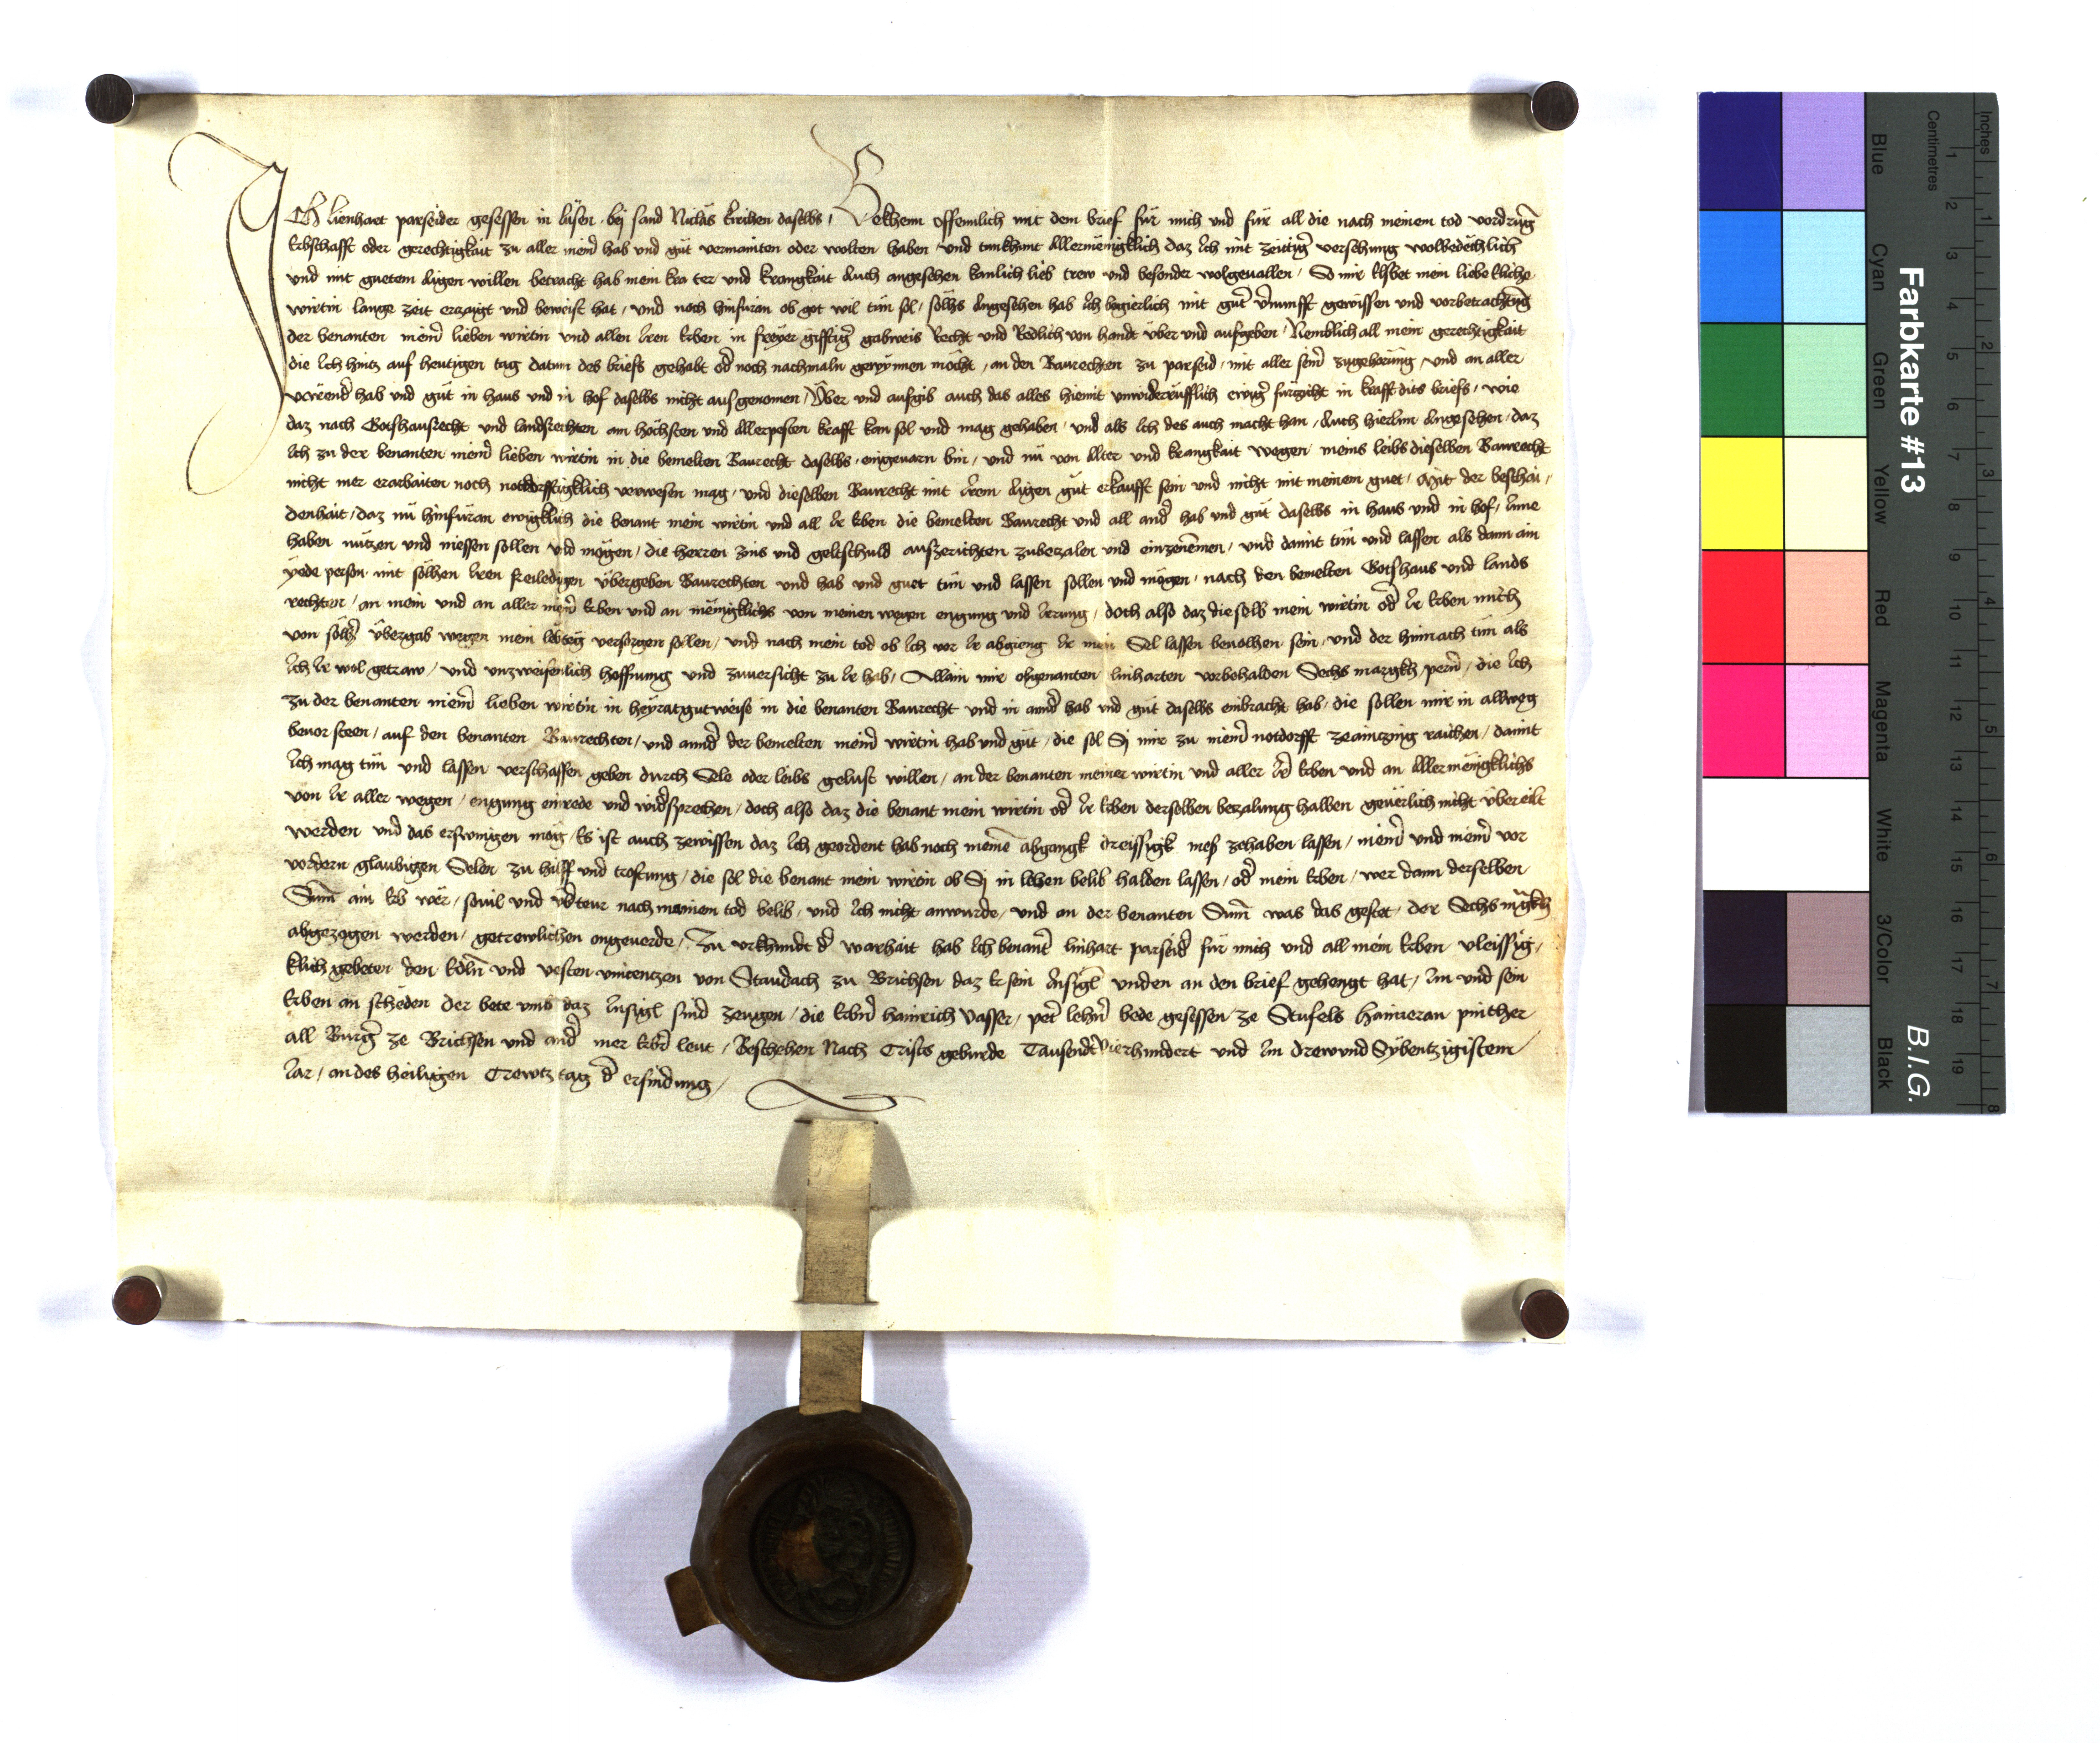 Ich Lienhart parseider gesessen in lüsen bey sand Niclas kirchen daselbs / Bekhenn offennlich mit dem brief für mich und für all die nach meinem tod vordrūg
Erbschafft oder gerechtigkait zu aller meinr̄ hab und güt vermainten oder wolten haben und tun khunt Allermenigklich daz Ich mit zeitigr̄ versehung wolbedechlich
und mit guetem Aigen willen betracht hab mein und krangkait Auch angesehen kanlich lieb trew und besonder wolgeuallen / So mir Elsbet mein liebe Eliche
wirtin lange zeit erzaigt und beweist hat / und noch hinfüran ob got wil tün sol / solhs Angesehen hab Ich begierlich mit gutr̄ v̄nunfft gewissen und vorbetrachtūg
der benanten meinr̄ lieben wirtin und allen Iren Erben in freyer gifftigr̄ gabweis Recht und Redlich von handt über und aufgeben / Nemblich all mein gerechtigkait
die Ich hintz auf hewtigen tag datum des briefs gehabt od̄ noch nachmaln gewynnen möcht / an den Baurechten zu parseid / mit aller seinr̄ zugehorūng / und an aller
varūend hab und güt in haus und in hof daselbs nicht ausgenomen / Über und aufgib auch das alles hiemit unwiderrüfflich ewigr̄ fürzicht in krafft dits briefs / wie
daz nach Gotshausrecht und landsrechten am höchsten und Allerpesten krafft kan sol und mag gehaben / und als Ich des auch macht han / Auch hierInn Angesehen / daz
Ich zu der benanten meinr̄ lieben wirtin in die bemelten Baurecht daselbs eingeuarn bin / und nü von Alter und krangkait wegen meins leibs dieselben Baurecht
nicht mer erarbaiten noch notdorfftigklich verwesen mag / und dieselben Baurecht mit Irem Aigen güt erkaufft sein und nicht mit meinem guet / Mit der beschai /
denhait / daz nü hinfüran ewigklich die benant mein wirtin und all Ir Erben die bemelten Baurecht und all andr̄ hab und güt daselbs in haus und in hof / Inne
haben nützen und niessen sollen vnd mögen / die herren zins und geltschuld auszerichten zubezalen und einzenēmen / und damit tün und lassen als dann ain
yede person mit sölhen Iren freiledigen übergeben Baurechten und hab und guet tün und lassen sollen und mögen / nach den bemelten Gotshaus und lands
rechten / an mein und an aller meinr̄ Erben und an menigklichs von meinen wegen engung und Irrung / doch also daz dieselb mein wirtin od̄ Ir Erben mich
von sölhr̄ übergab wegen mein lebteg versorgen sollen / und nach mein tod ob Ich vor Ir abgieng Ir mein Sel lassen beuolhen sein / und der hinnach tün als
Ich Ir wol getraw / und vnzweifenlich hoffnung und zuuersicht zu Ir hab / Allain mir obgenanten linharten vorbehalden Sechs margkh pernr̄ / die Ich
zu der benanten meinr̄ lieben wirtin in heyratgutweise in die benanten Baurecht und in anndr̄ hab vnd güt daselbs einbracht hab / die sollen mir in allweg
beuor steen / auf den benanten Baurechten / und anndr̄ der bemelten meinr̄ wirtin hab und güt / die sol Sy mir zu meinr̄ notdorfft zeaintzing raichen / damit
Ich mag tün und lassen verschaffen geben durch Sele oder leibs gelust willen / an der benanten meiner wirtin und aller Irr̄ Erben und an Allermenigklichs
von Ir aller wegen / engung einrede und widsprechen / doch also daz die benant mein wirtin od̄ Ir Erben derselben bezalung halben geuerlich nicht übereilt
werden und das erswingen mög / Es ist auch zewissen daz Ich geordent hab noch meinē abgangk dreissigk meß zehaben lassen / meinr̄ und meinr̄ vor
vordern glaubigen Selen zu hilff und trostung / die sol die benant mein wirtin ob Sy in leben belib halden lassen / od̄ mein Erben / wer dann derselben
Sum̄ ain Erb wër / souil und nach meinem tod belib / und Ich nicht anwurde / und an der benanten Sum̄ was das gestet / der Sechs mr̄gkh
abgezogen werden / getrewlichen ongeuerde / Zu vrkhundt d̄ warhait hab Ich benantr̄ linhart parseidr̄ für mich und all mein Erben vleissig /
klich gebeten den Edln̄ und vesten vincentzen von Staudach zu Brichsen daz Er sein Insigl̄ unden an den brief gehengt hat / Im und sein
Erben an scheden der bete vmb daz Insigl sind zeugen / die Erbrn̄ hainrich Vasser / petr̄ lehnr̄ bede gesessen ze Stufels haimeran pinther
all Burgr̄ ze Brichsen und andr̄ mer Erbr̄ leut / Beschehen Nach Crists geburde Tausendt vierhundert und Im drewvnd Sybentzigistem
Iar / an des heiligen Crewtz tag d̄ erfindung /
Farbkarte #13
B.I.G.
Inches
Centimetres
1 2 3 4 5 6 7 8 9 10 11 12 13 14 15 16 17 18 19
1 2 3 4 5 6 7 8
Blue
Cyan
Green
Yellow
Red
Magenta
White
3/Color
Black